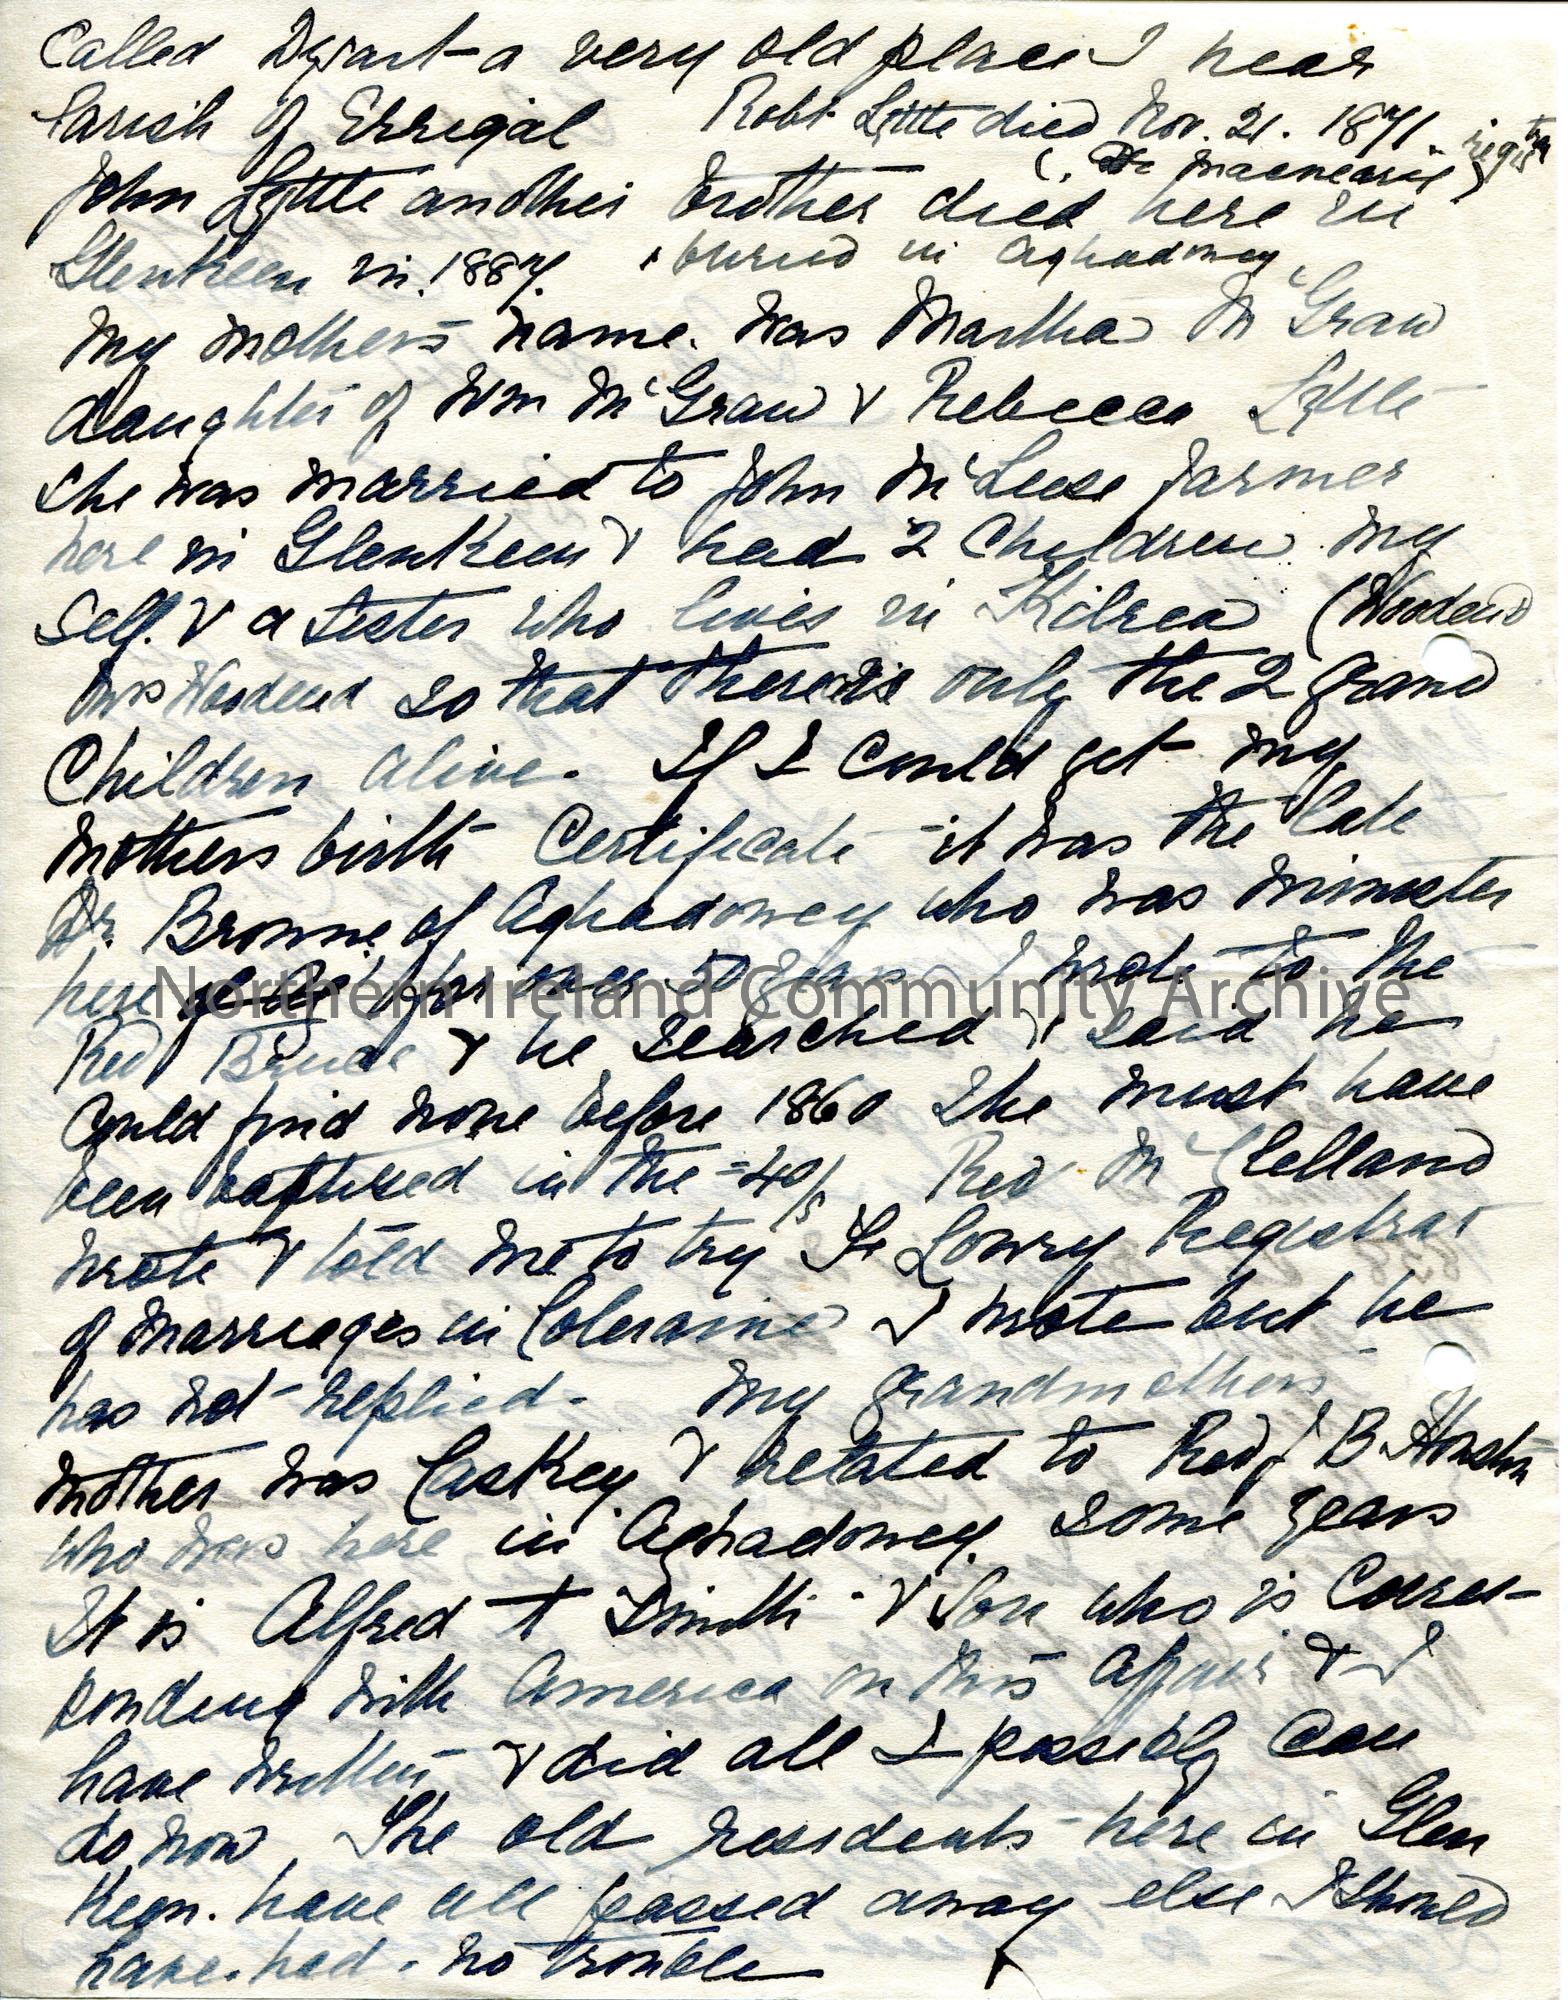 Called Dysart - a very old place I hear
Parish of Errigal Robt Lyttle died Nov. 21. 1871.
(Macnearie)
John Lyttle another brother died here in
Glenkeen in 1887. buried in Aghadowey
My mothers name. was Martha McGraw
daughter of Wm McGraw & Rebecca Lyttle
She was married to John McLeese farmer
here in Glenkeen & had 2 Children my
Self. & a Sister who lives in Kilrea (Woodend)
Mrs Woodend so that there is only the 2 grand
Children alive. If I could get my
mothers birth Certificate - it was the late
Dr. Browne of Aghadowey who was minister
here for over 50 years I wrote to the
Northern Ireland Community Archive
Rev & he searched & said he
Could find none before 1860 She must have
been baptised in the =40/s Rev McClelland
wrote & told me to try Lowry Registrar
of Marriages in Coleraine I wrote but he
has not replied. My grandmothers
mother was Caskey & related to Rev J B Huston
who was here in Aghadowey some years
It is Alfred T Smith & Son who is Corres-
ponding with America on this affair & I
have written & did all I possibly can
do now. The old residents here in Glen
Keen. have all passed away else I should
have. had. no trouble